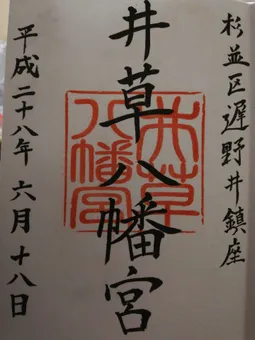 杉並区遅野井鎮座
井草八幡宮
井草八幡宮
平成二十八年 六月 十八日